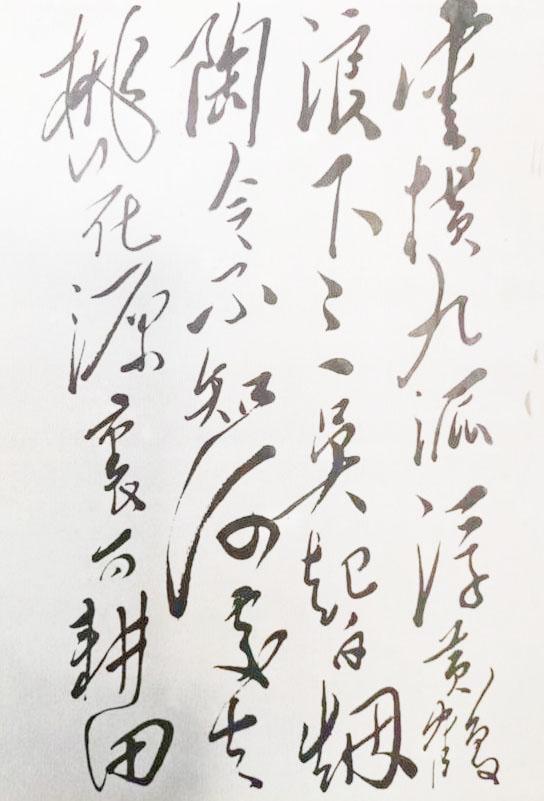 雲横九派浮黄鶴
浪下三吴起白烟
陶令不知何處去
桃花源裏可耕田